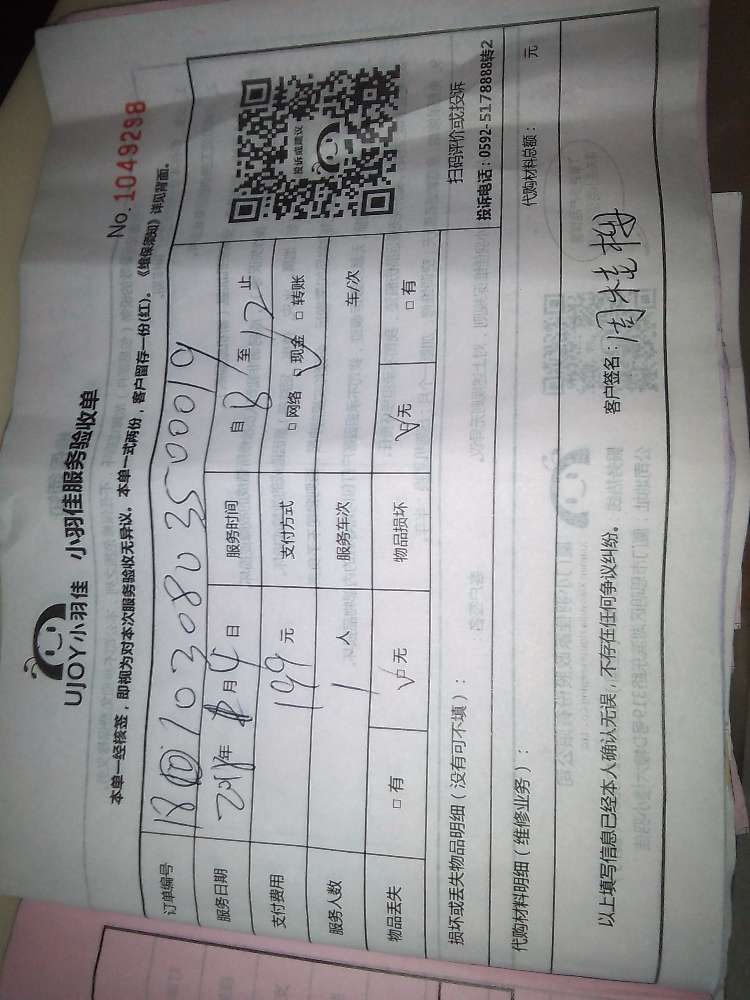 No. 1049298
UJOY小羽佳 小羽佳服务验收单
本单一经核签，即视为对本次服务验收无异议。本单一式两份，客户留存一份(红)。《维保须知》详见背面。
订单编号
服务日期 2018年 月4日 服务时间 自8至12止
支付费用 199元 支付方式 □网络 ☑现金 □转账
服务人数 1人 服务车次 车/次
物品丢失 □有 ☑无 物品损坏 ☑无 □有
投诉或建议
扫码评价或投诉
投诉电话：0592-5178888转2
损坏或丢失物品明细（没有可不填）：
代购材料明细（维修业务）： 代购材料总额： 元
以上填写信息已经本人确认无误，不存在任何争议纠纷。 客户签名：周桂梅